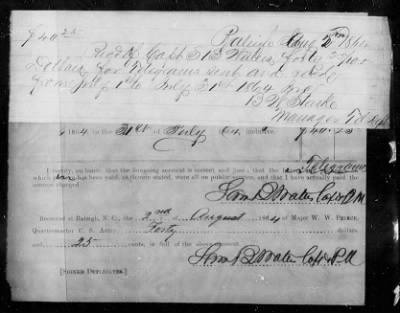 $40 25
Raleigh Aug 2nd 1864
Recd of Capt S B Waters forty 25/100
Dollars for Telegrams sent and recd
from July 1st to July 31st 1864
Manager Tel
1864 to 31st of July 64 $40.25
I certify, on honor, that the foregoing account is correct and just; that the Telegrams
has been paid, as therein stated, were all on public service, and that I have actually paid the
amount charged.
Sam B Waters Capt &
Received at Raleigh, N. C., the 2nd of August 1864, of Major W. W. PEIRCE,
Quartermaster C. S. Army, Forty dollars,
and 25 cents, in full of the above account.
Sam B Waters Capt &
[SIGNED DUPLICATES.]